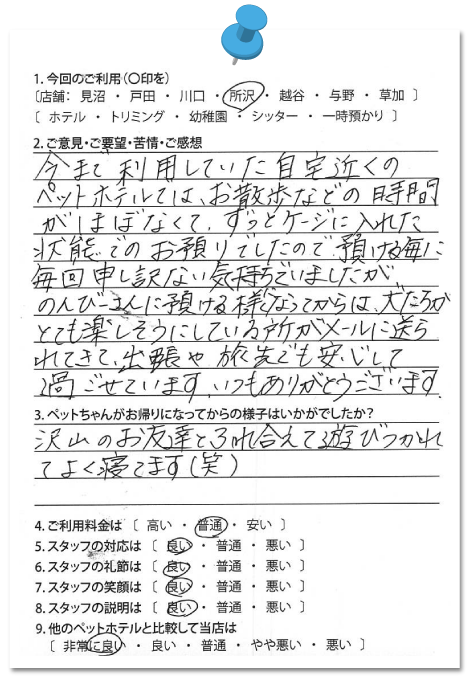 1. 今回のご利用(○印を)
〔店舗: 見沼 ・ 戸田 ・ 川口 ・ 所沢 ・ 越谷 ・ 与野 ・ 草加 〕
〔 ホテル ・ トリミング ・ 幼稚園 ・ シッター ・ 一時預かり 〕
2. ご意見・ご要望・苦情・ご感想
今まで利用していた自宅近くの
ペットホテルでは、お散歩などの時間
がほぼなくて、ずっとケージに入れた
状態でのお預りでしたので、預ける毎に
毎回申し訳ない気持ちでいましたが
のんびーさんに預ける様になってからは、犬たちが
とても楽しそうにしている所がメールに送ら
れてきて、出張や旅先でも安心して
過ごせています。いつもありがとうございます。
3. ペットちゃんがお帰りになってからの様子はいかがでしたか?
沢山のお友達とふれ合えて遊びつかれ
てよく寝てます(笑)
4. ご利用料金は 〔 高い ・ 普通 ・ 安い 〕
5. スタッフの対応は 〔 良い ・ 普通 ・ 悪い 〕
6. スタッフの礼節は 〔 良い ・ 普通 ・ 悪い 〕
7. スタッフの笑顔は 〔 良い ・ 普通 ・ 悪い 〕
8. スタッフの説明は 〔 良い ・ 普通 ・ 悪い 〕
9. 他のペットホテルと比較して当店は
〔 非常に良い ・ 良い ・ 普通 ・ やや悪い ・ 悪い 〕